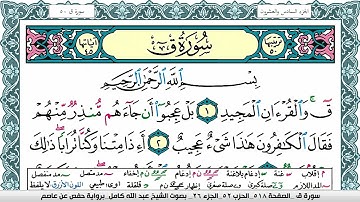 الجزء السادس والعشرون
سورة ق ٥٠
ترتيبها ٥٠
سُورَةُ قٓ
آياتها ٤٥
بِسْمِ ٱللَّهِ ٱلرَّحْمَٰنِ ٱلرَّحِيمِ
قٓ ۚ وَٱلْقُرْءَانِ ٱلْمَجِيدِ ١ بَلْ عَجِبُوٓا۟ أَن جَآءَهُم مُّنذِرٌ مِّنْهُمْ
فَقَالَ ٱلْكَٰفِرُونَ هَٰذَا شَىْءٌ عَجِيبٌ ٢ أَءِذَا مِتْنَا وَكُنَّا تُرَابًا ۖ ذَٰلِكَ
سورة ق - الصفحة ٥١٨ الحزب ٥٢ الجزء ٢٦ - بصوت الشيخ عبد الله كامل - برواية حفص عن عاصم